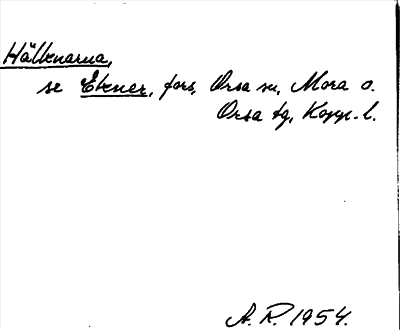 Hälkenarna,
se Ekner, fors, Orsa sn, Mora o.
Orsa tg, Kopp. l.
A. R. 1954.